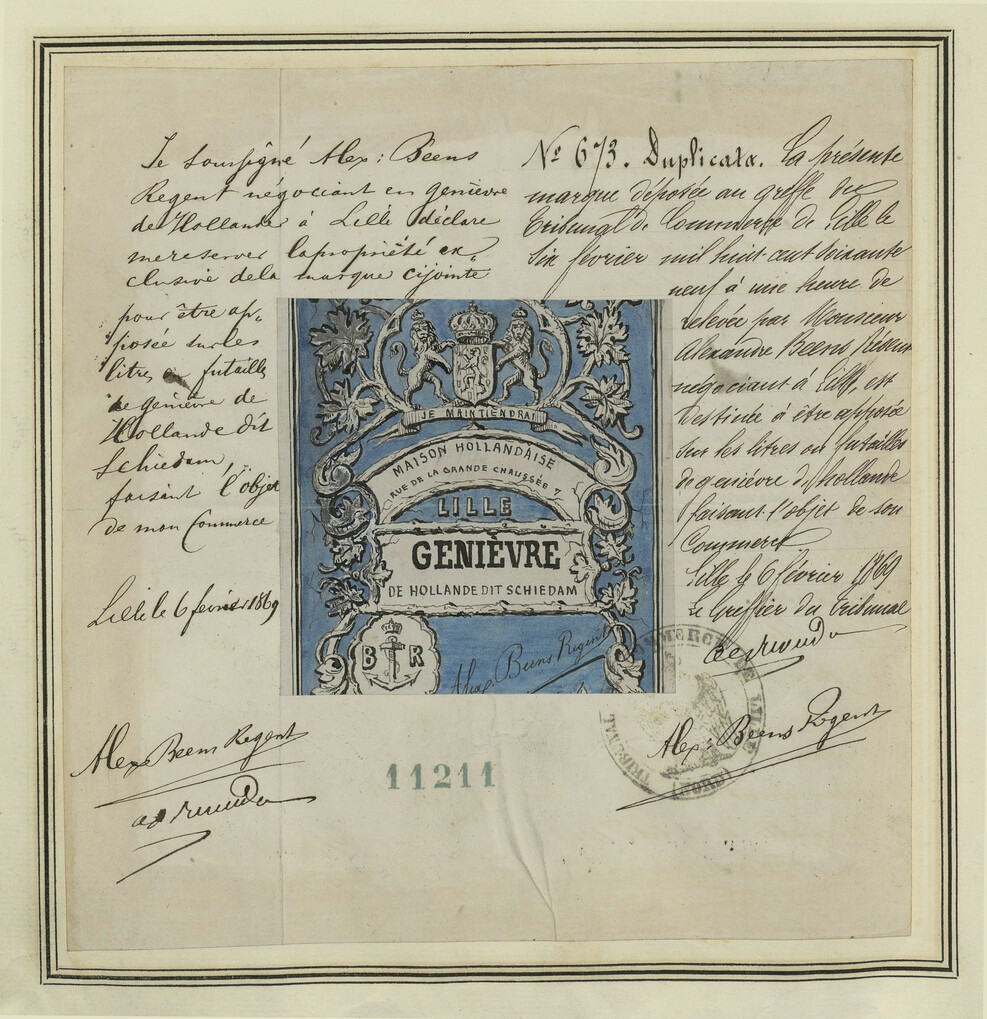 Je soussigné Alex: Beens
Regent négociant en genièvre
de Hollande à Lille déclare
me reserver la propriété ex-
clusive de la marque cijointe
pour être ap-
posée sur les
litres ou futailles
de genièvre de
Hollande dit
Schiedam,
faisant l'objet
de mon Commerce
Lille le 6 fevrier 1869
Alex Beens Regent
N° 673. Duplicata. La présente
marque déposée au greffe du
Tribunal de Commerce de Lille le
Six février mil huit cent soixante
neuf à une heure de
relevée par Monsieur
Alexandre Beens Régent
négociant à Lille, est
destinée à être apposée
sur les litres ou futailles
de genièvre d'hollande
faisant l'objet de son
Commerce
Lille le 6 février 1869
Le Greffier du tribunal
Alex: Beens Regent
JE MAINTIENDRAI
MAISON HOLLANDAISE
RUE DE LA GRANDE CHAUSSÉE 7
LILLE
GENIÈVRE
DE HOLLANDE DIT SCHIEDAM
B R
Alex. Beens Regent
TRIBUNAL DE COMMERCE DE LILLE
(NORD)
11211